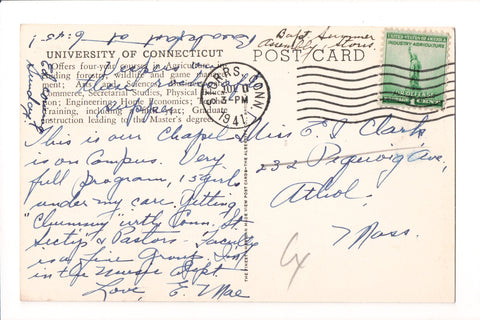 Breakfast at 6:45!
UNIVERSITY OF CONNECTICUT
Offers four-year courses in Agriculture, in-
cluding forestry, wildlife and game manage-
ment; Arts and Sciences
Commerce, Secretarial Studies, Physical Educa-
tion; Engineering; Home Economics;
training, including
struction leading to Master's degree.
Sunday
This is our Chapel
is on Campus. Very
full program, 15 girls
under my care. Getting
"chummy" with Conn. St.
Sect'y & Pastors - Faculty
is a fine Group. I'm
in the Dept.
Love, E. Mae
Bapt Summer
Assembly, Storrs.
POST CARD
STORRS, CONN.
3-PM
1941
UNITED STATES OF AMERICA
INDUSTRY AGRICULTURE
FOR DEFENSE
1 CENT
Miss E J Clark
232 Pequoig Ave,
Athol,
Mass.